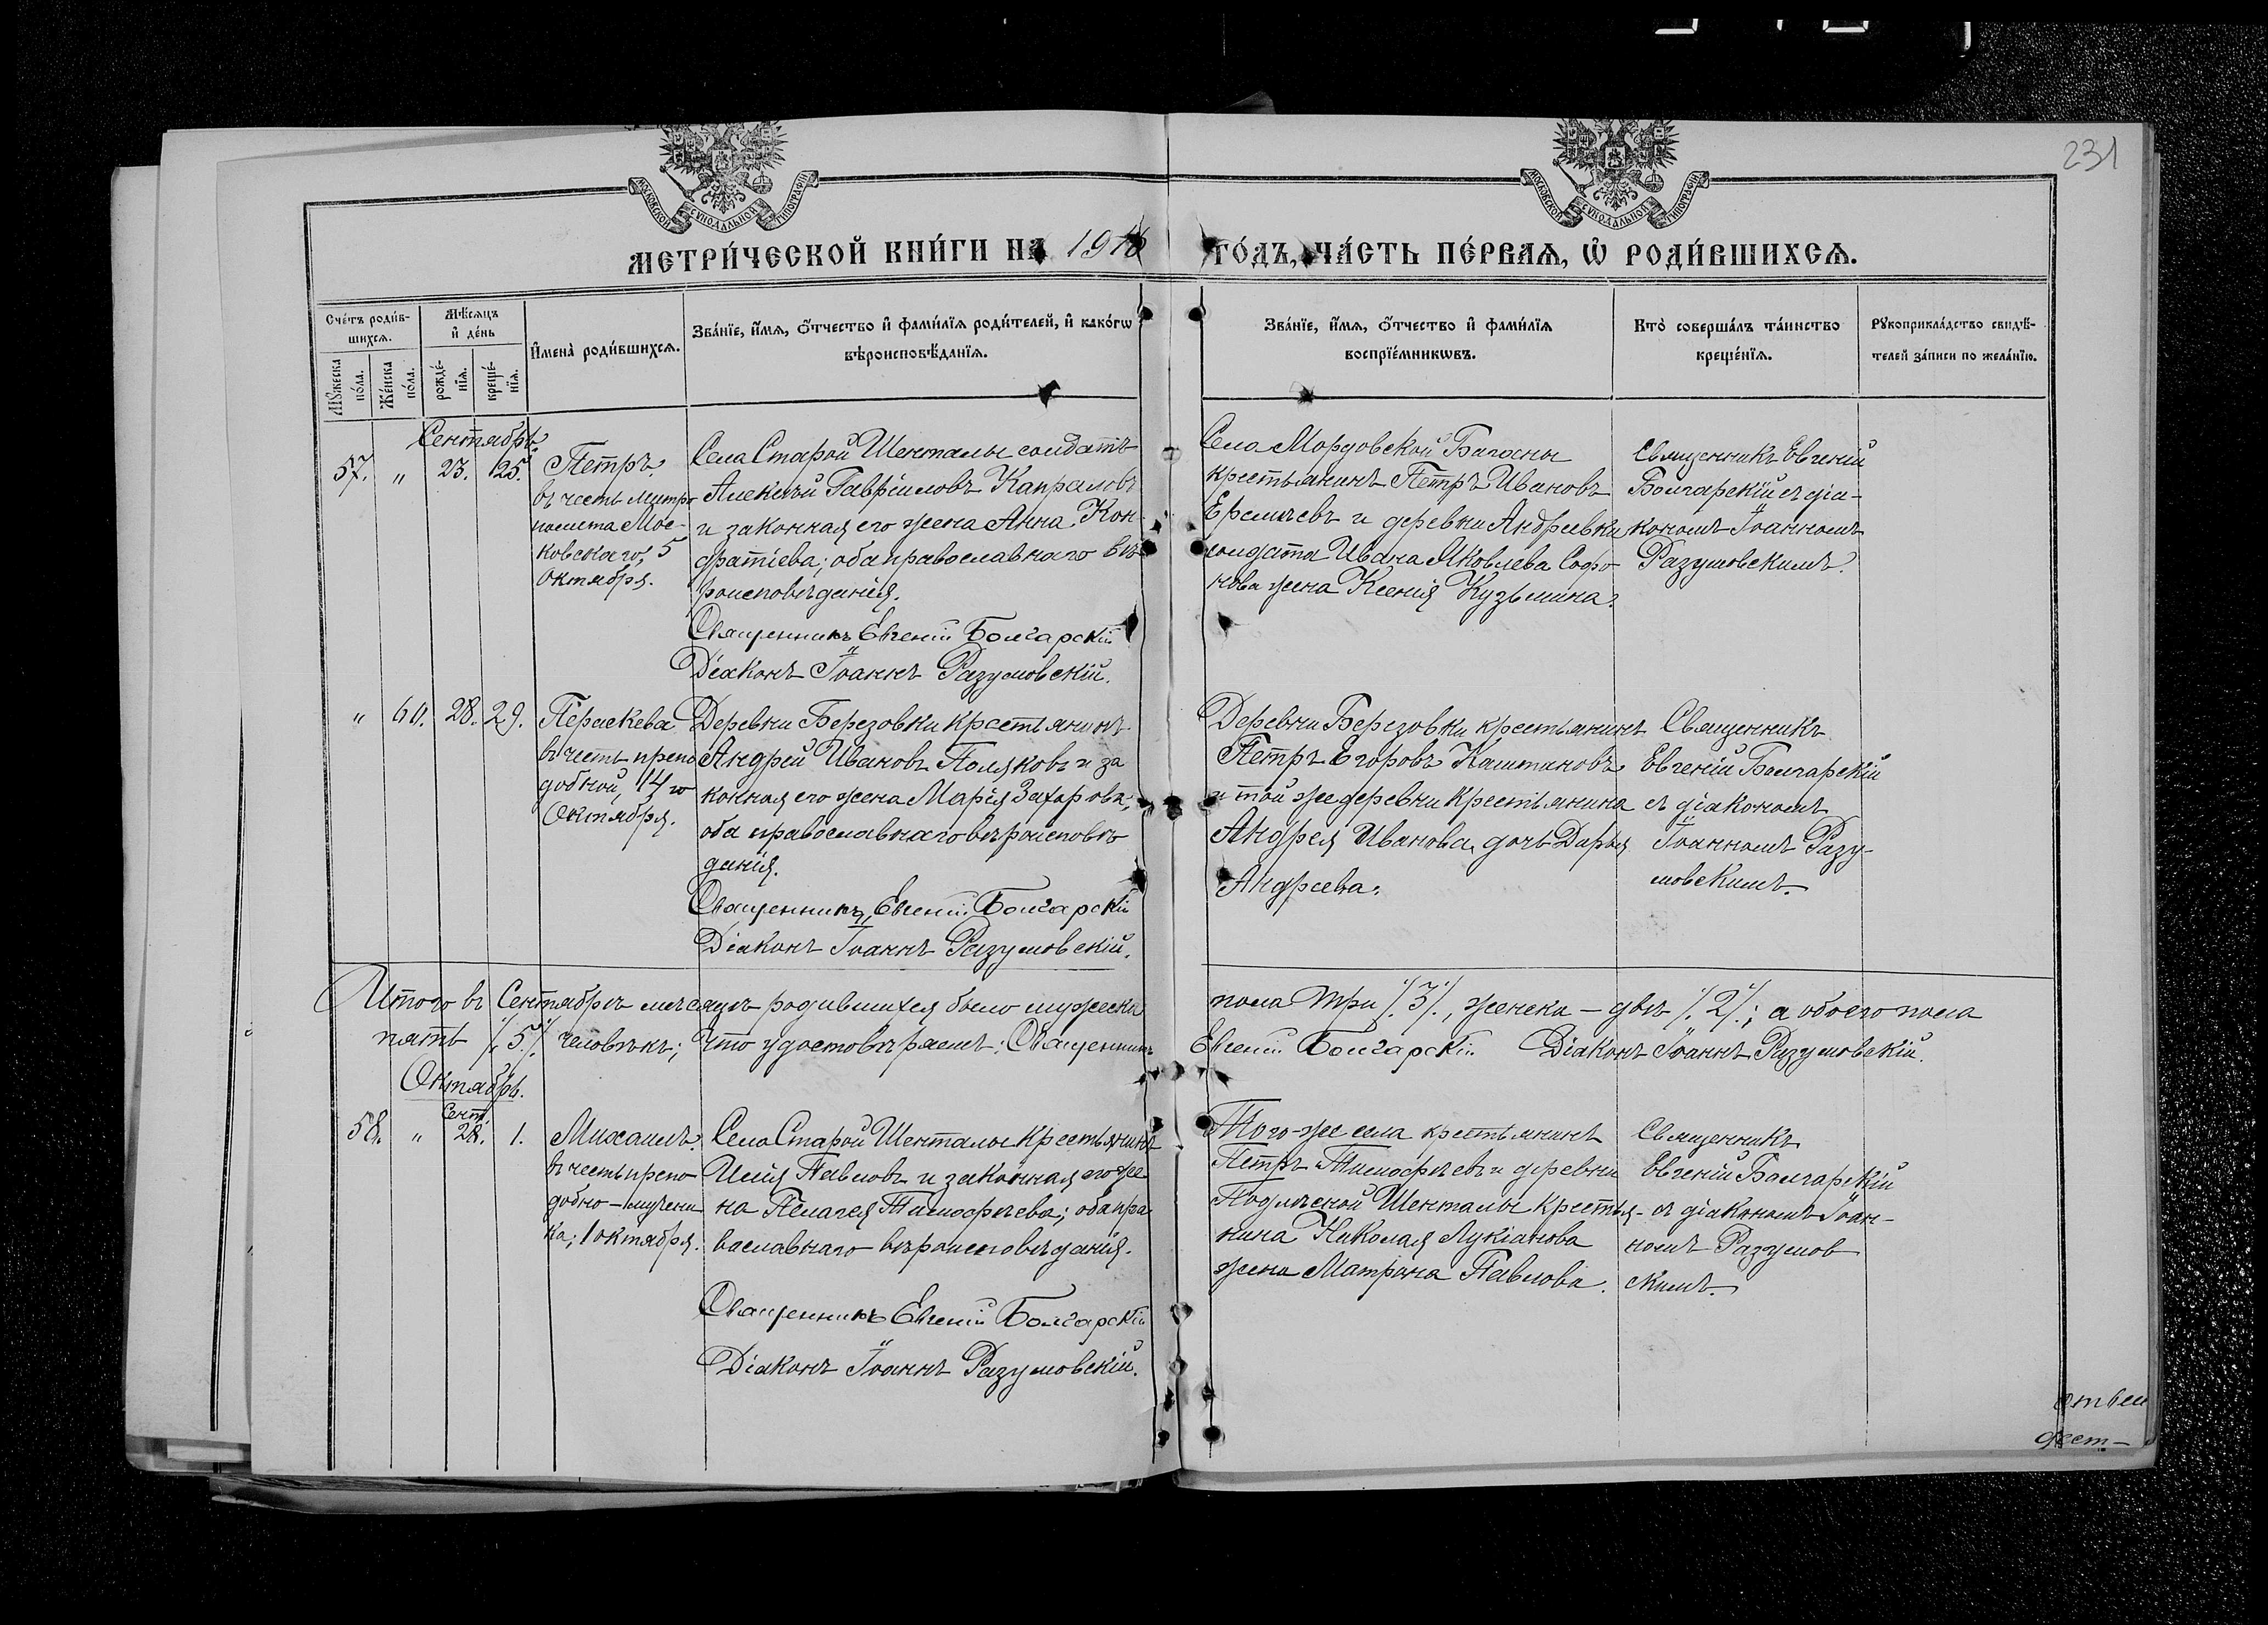 231
МОСКОВСКОЙ СѴНОДАЛЬНОЙ ТИПОГРАФІИ
МОСКОВСКОЙ СѴНОДАЛЬНОЙ ТИПОГРАФІИ
МЕТРИ́ЧЕСКОЙ КНИ́ГИ НА 1916 ГО́ДЪ, ЧА́СТЬ ПЕ́РВАѦ, Ѽ РОДИ́ВШИХСѦ.
Сче́тъ роди́в-
шихсѧ.
Мꙋ́жеска по́ла.
Же́нска по́ла.
Мѣ́сѧцъ и҆ де́нь
рожде́-нїѧ.
креще́-нїѧ.
И҆мена̀ роди́вшихсѧ.
Зва́нїе, и҆́мѧ, ѻ҆́тчество и҆ фами́лїѧ роди́телей, и҆ како́гѡ
вѣроисповѣ́данїѧ.
Зва́нїе, и҆́мѧ, ѻ҆́тчество и҆ фами́лїѧ
воспрїе́мникѡвъ.
Кто̀ соверша́лъ та́инство
креще́нїѧ.
Рꙋкоприкла́дство свидѣ́-
телей за́писи по жела́нїю.
Сентябрь
57. " 23. 25. Петръ
въ честь митро
полита Мос-
ковскаго, 5
Октября.
Села Старой Шенталы солдатъ
Алексѣй Гавріиловъ Капраловъ
и законная его жена Анна Кон-
дратіева; оба православнаго вѣ
роисповѣданія.
Священникъ Евгеній Болгарскій
Діаконъ Іоаннъ Разумовскій.
Села Мордовской Баганы
крестьянинъ Петръ Ивановъ
Еремѣевъ и деревни Андреевки
солдата Ивана Яковлева Софо-
нова жена Ксенія Кузьмина.
Священникъ Евгеній
Болгарскій съ діа-
кономъ Іоанномъ
Разумовскимъ.
" 60. 28. 29. Параскева
въ честь препо
добной, 14 го
Октября.
Деревни Березовки крестьянинъ
Андрей Ивановъ Поляковъ и за
конная его жена Марія Захарова;
оба православнаго вѣроисповѣ
данія.
Священникъ Евгеній Болгарскій
Діаконъ Іоаннъ Разумовскій.
Деревни Березовки крестьянинъ
Петръ Егоровъ Каштановъ
и той же деревни крестьянина
Андрея Иванова дочь Дарья
Андреева.
Священникъ
Евгеній Болгарскій
съ діакономъ
Іоанномъ Разу-
мовскимъ.
Итого въ Сентябрѣ мѣсяцѣ родившихся было мужеска пола три /.3/., женска – двѣ /.2/.; а обоего пола
пять /.5/. человѣкъ; Что удостовѣряемъ: Священникъ Евгеній Болгарскій Діаконъ Іоаннъ Разумовскій.
Октябрь.
Сент.
58. " 28. 1. Михаилъ
въ честь препо
добно-мучени
ка; 1 октября.
Села Старой Шенталы крестьянинъ
Илія Павловъ и законная его же
на Пелагея Тимофѣева; оба пра
вославнаго вѣроисповѣданія.
Священникъ Евгеній Болгарскій
Діаконъ Іоаннъ Разумовскій.
Того-же села крестьянинъ
Петръ Тимофѣевъ и деревни
Подлѣсной Шенталы крестья-
нина Николая Лукіанова
жена Матрона Павлова.
Священникъ
Евгеній Болгарскій
съ діакономъ Іоан-
номъ Разумов
скимъ.